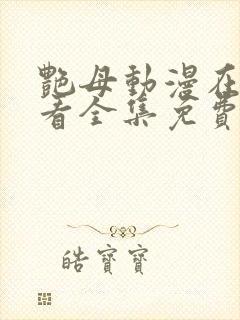 艷母動漫在
看全集免費
皓寶寶